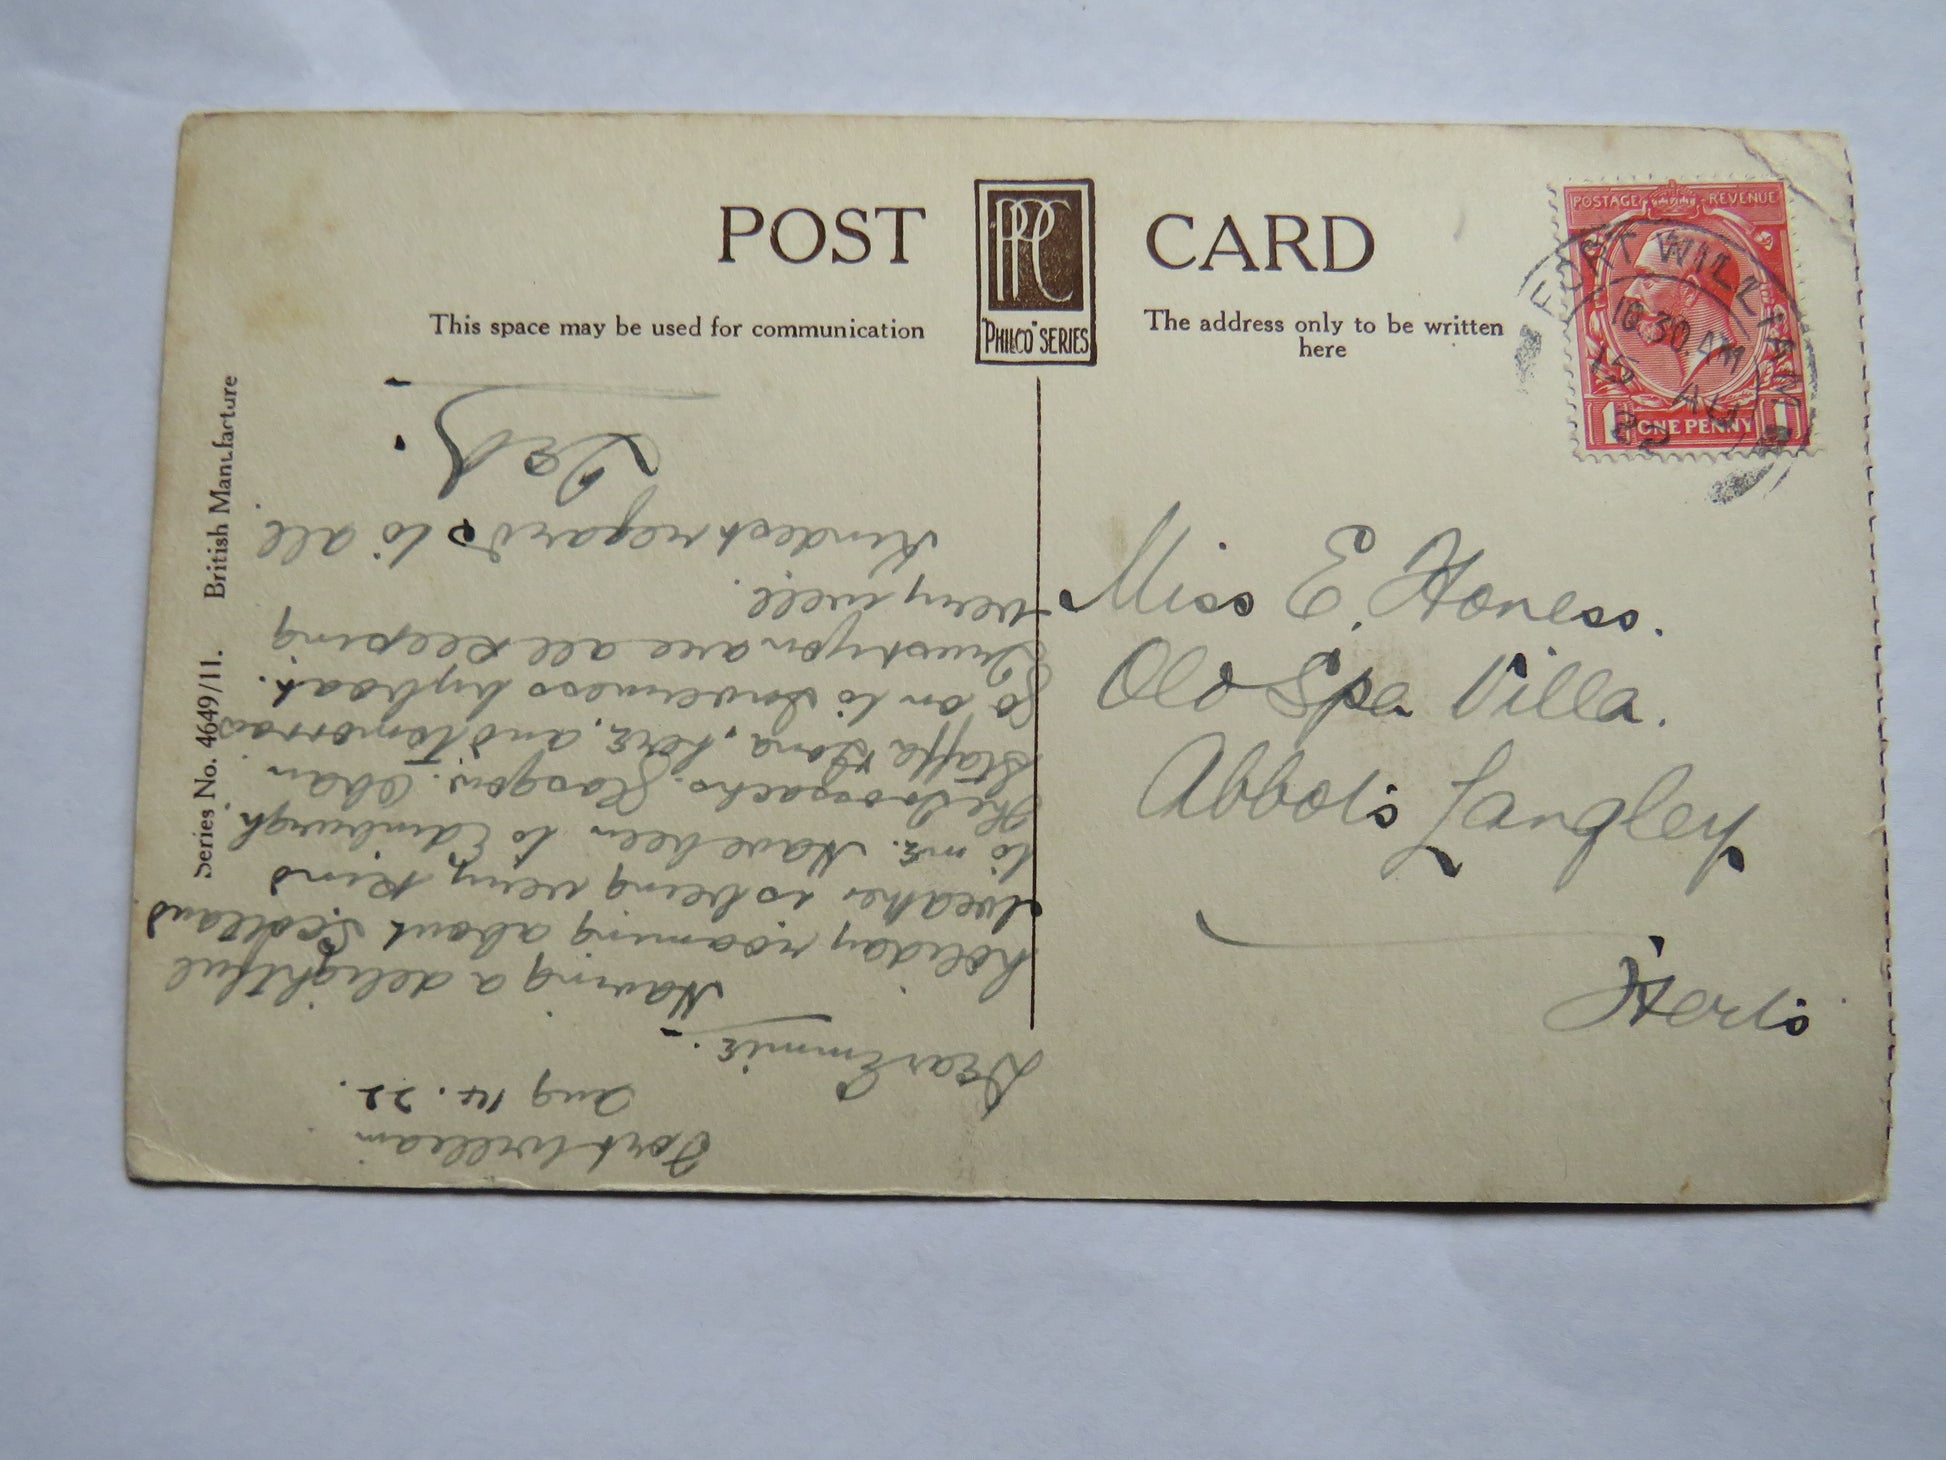 POST CARD
PPC
"PHILCO" SERIES
This space may be used for communication
The address only to be written
here
POSTAGE REVENUE
1 ONE PENNY 1
FORT WILLIAM
10.30 AM
15 AU
22
Series No. 4649/11. British Manufacture
Miss E. Honess.
Old Spa Villa.
Abbots Langley
Herts
Fort William
Aug 14. 22.
Dear Emmie. -
Having a delightful
holiday roaming about Scotland
Weather is being very kind
to me. Have been to Edinburgh.
The Trossachs. Glasgow. Oban
Staffa & Iona, here, and tomorrow
go on to Inverness by boat.
Trust you are all keeping
very well.
Kindest regards to all